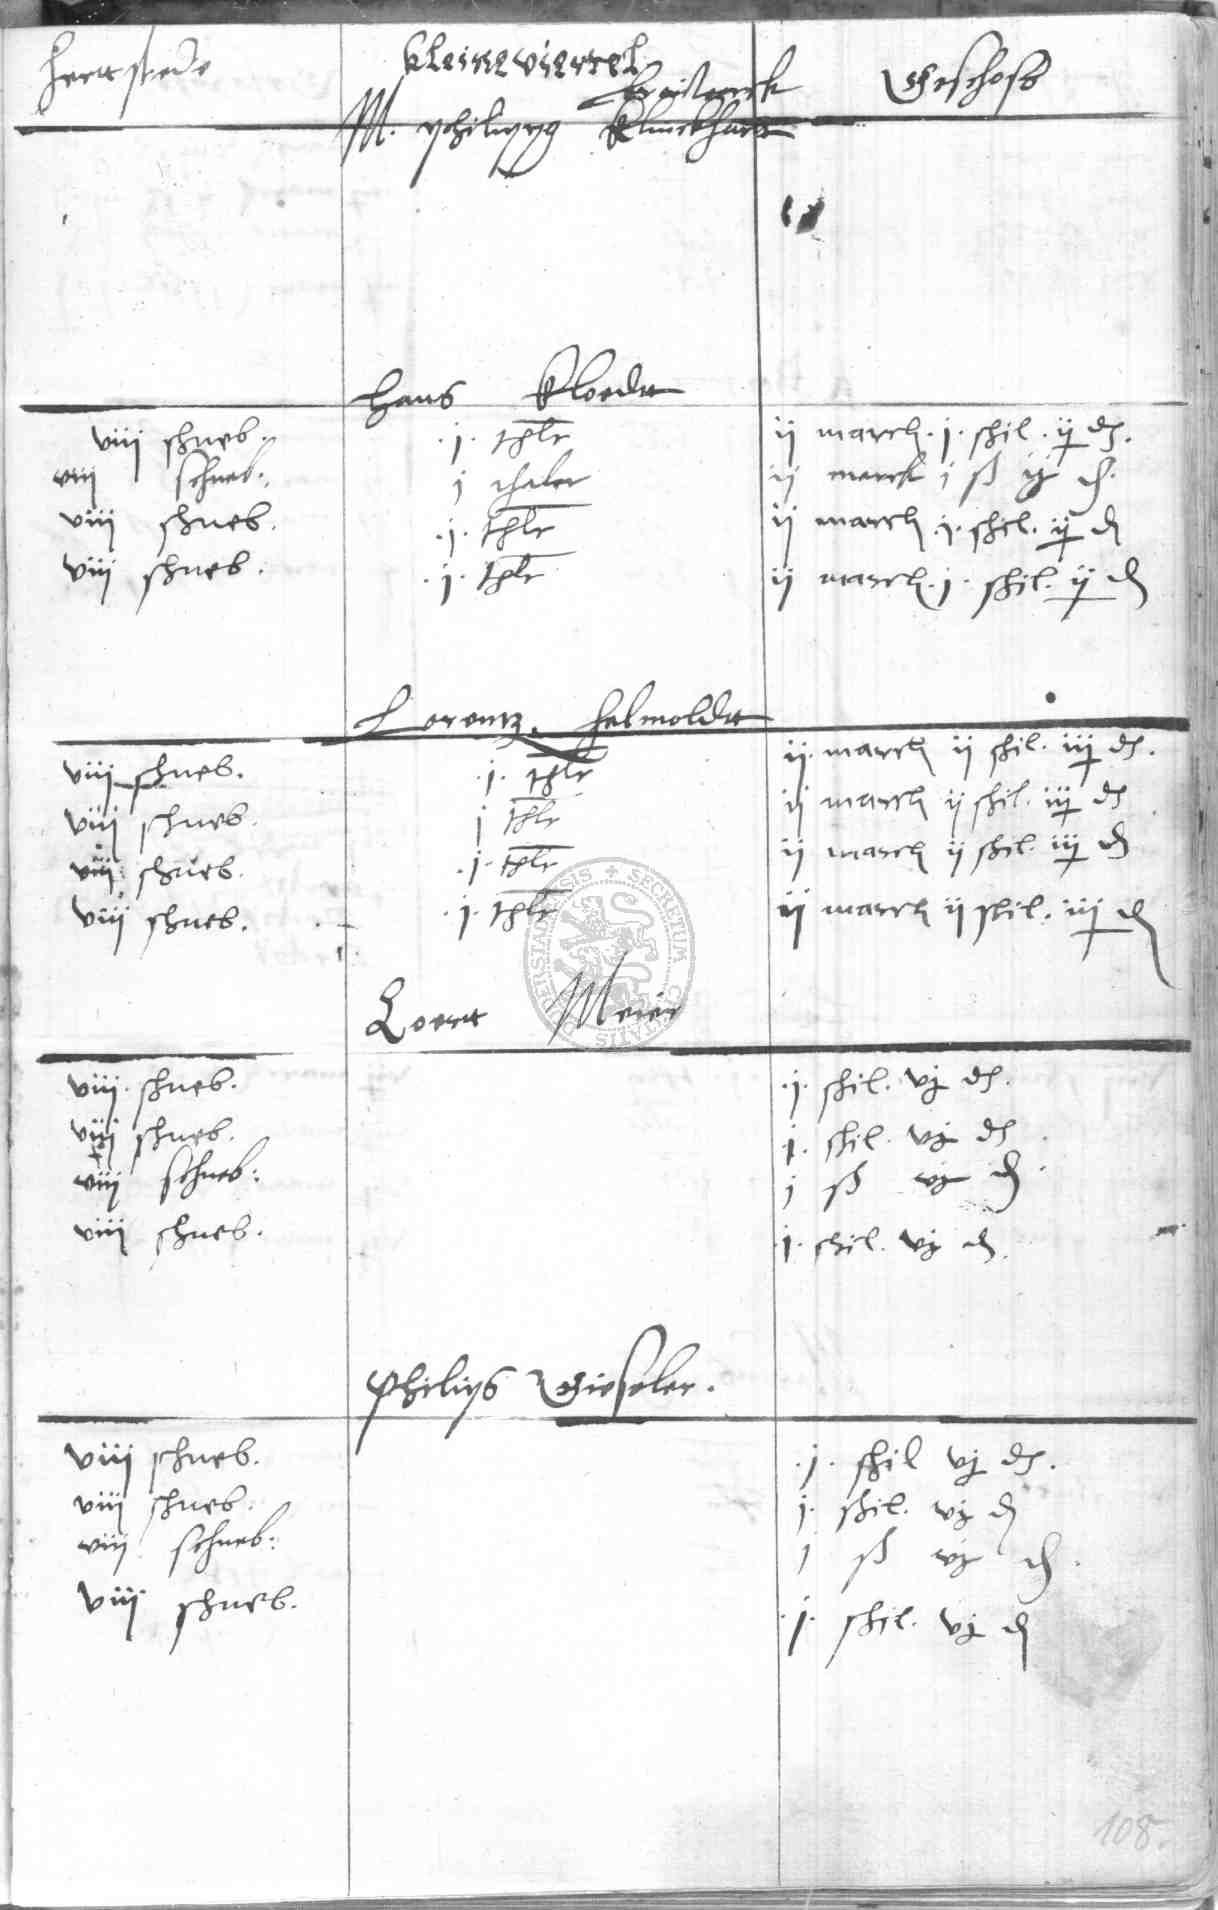 Hertstede Kleineviertel Geschoss
M. philipp Klinckhart
Hans Kloedt
viij schneb. .j. thlr ij march. j. schil. ij d.
viij schneb: j thaler ij marck j ß ij d.
viij schneb. .j. thlr ij march .j. schil. ij d
viij schneb. .j. thlr ij march. j. schil. ij d
Lorentz. Helmoldt
viij schneb. .j. thlr ij. march ij schil. iij d.
viij schneb. j thlr ij march ij schil. iij d
viij schneb. .j. thlr ij march ij schil. iij d
viij schneb. .j. thlr ij march ij schil. iij d
SECRETUM CIVITATIS DUDERSTADENSIS
Coert Meier
viij. schneb. .j. schil. vj d.
viij schneb. j. schil. vj d
viij schneb: j ß vj d
viij schneb. .j. schil. vj d.
Philips Gieseler.
viij schneb. .j. schil vj d.
viij schneb. j. schil. vj d
viij schneb: j ß vj d.
viij schneb. .j. schil. vj d
108.